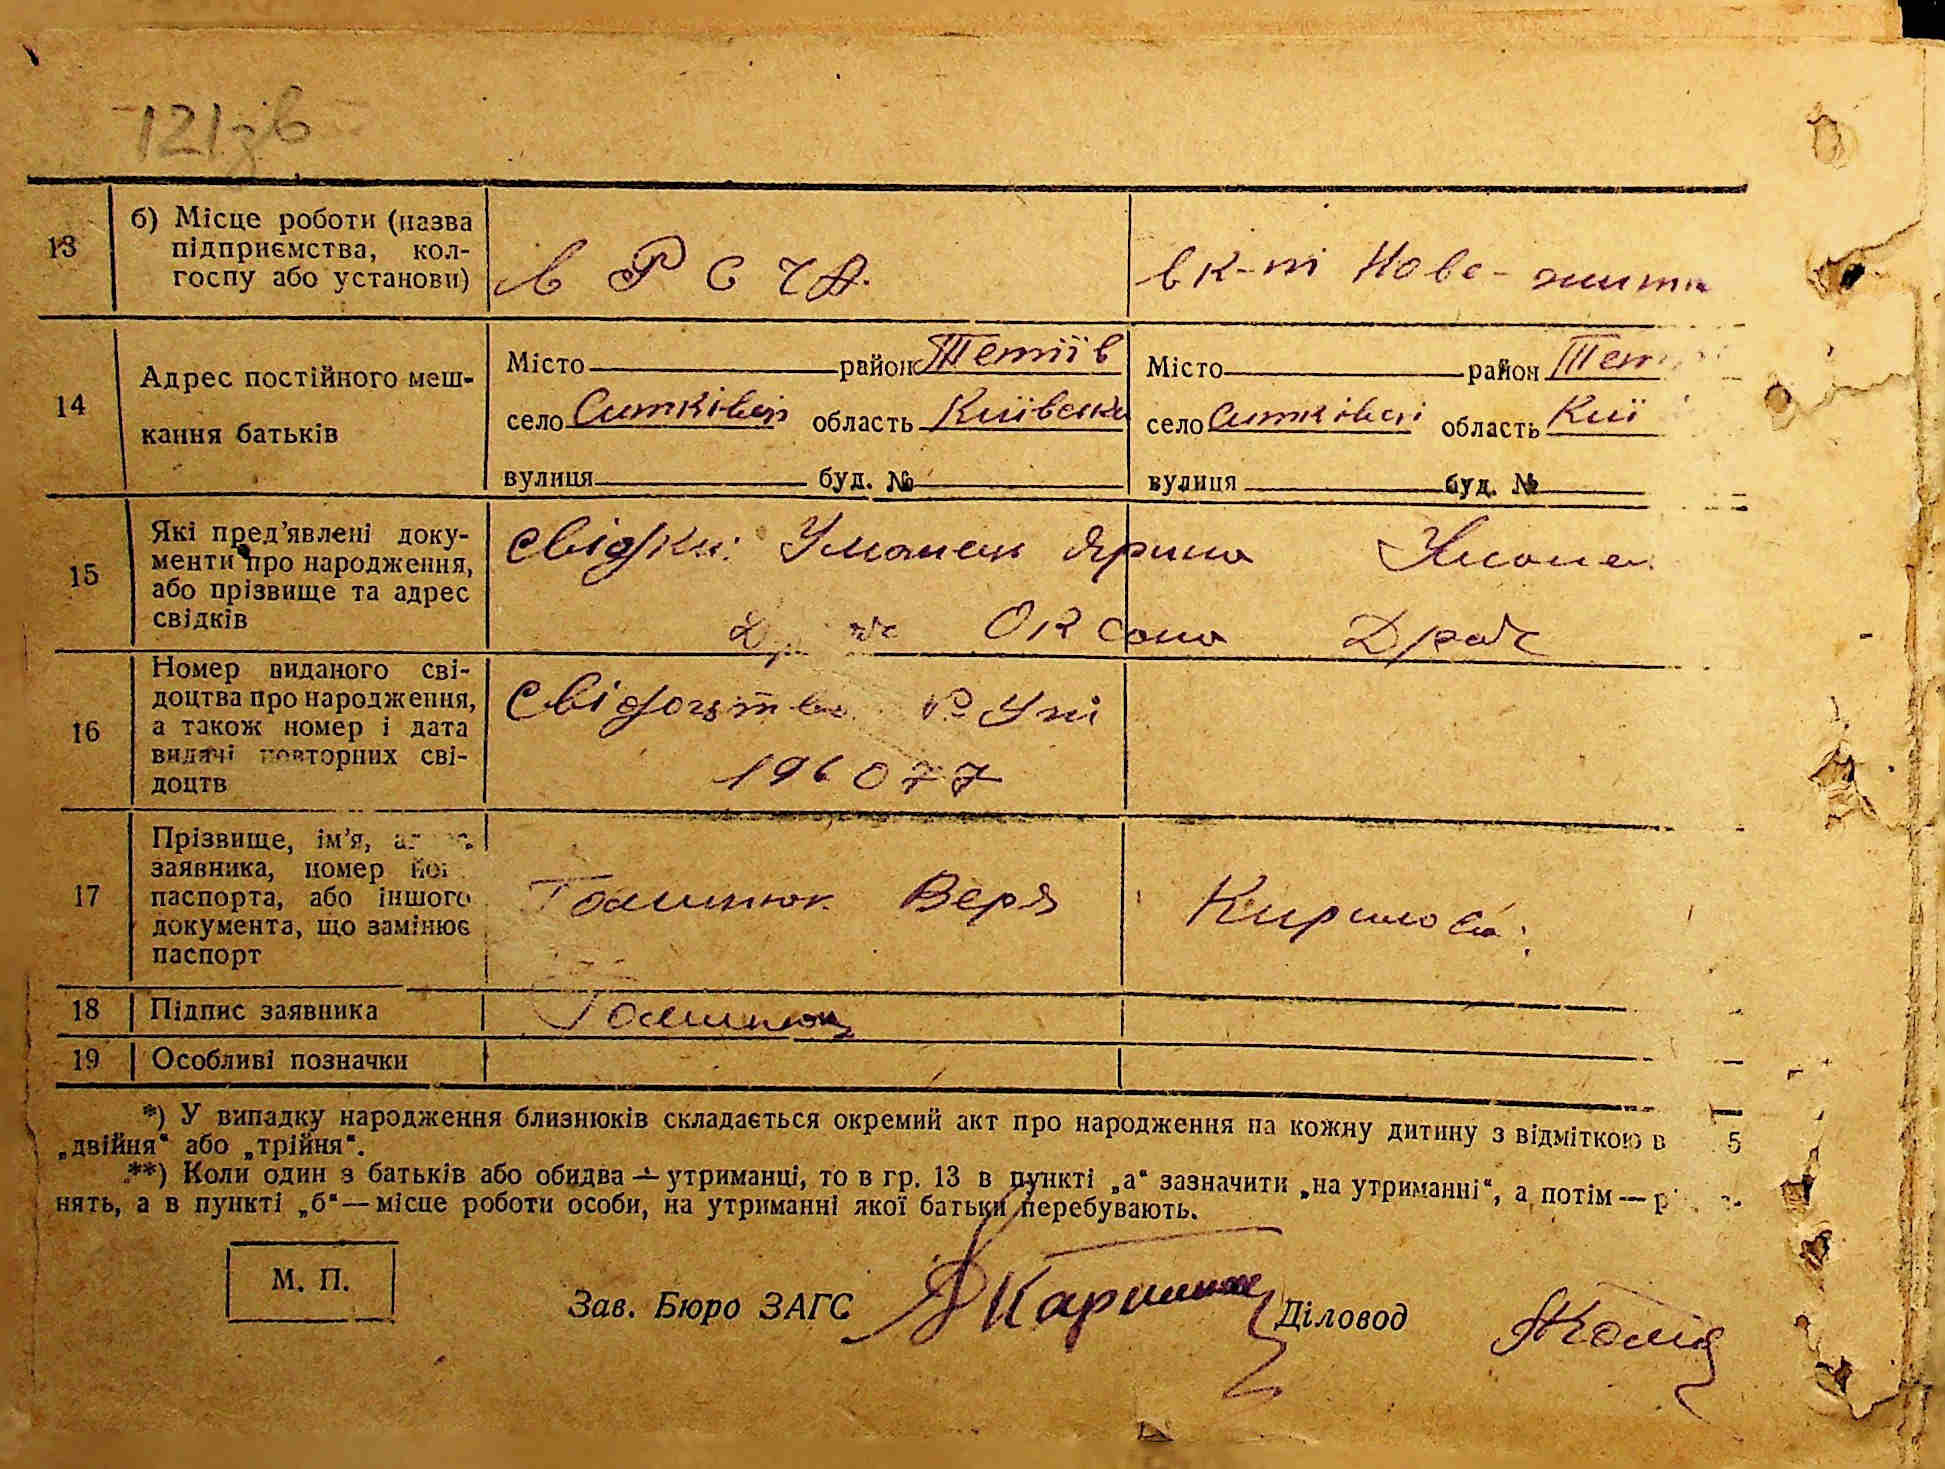 121зв
13
б) Місце роботи (назва
підприємства, кол-
госпу або установи)
в Р С Ч А.
в к-пі Нове-життя
14
Адрес постійного меш-
кання батьків
Місто район Тетіїв
село Ситківці область Київська
вулиця буд. №
Місто район Тет
село Ситківці область Киї
вулиця буд. №
15
Які пред'явлені доку-
менти про народження,
або прізвище та адрес
свідків
свідки: Уманец Ярина
Драч Оксана Драч
16
Номер виданого сві-
доцтва про народження,
а також номер і дата
видачі повторних сві-
доцтв
Свідоцтво
196077
17
Прізвище, ім'я,
заявника, номер його
паспорта, або іншого
документа, що замінює
паспорт
Вера
18
Підпис заявника
19
Особливі позначки
*) У випадку народження близнюків складається окремий акт про народження на кожну дитину з відміткою в 5
„двійня“ або „трійня“.
**) Коли один з батьків або обидва — утриманці, то в гр. 13 в пункті „а“ зазначити „на утриманні“, а потім —
нять, а в пункті „б“ — місце роботи особи, на утриманні якої батьки перебувають.
М. П.
Зав. Бюро ЗАГС
Діловод